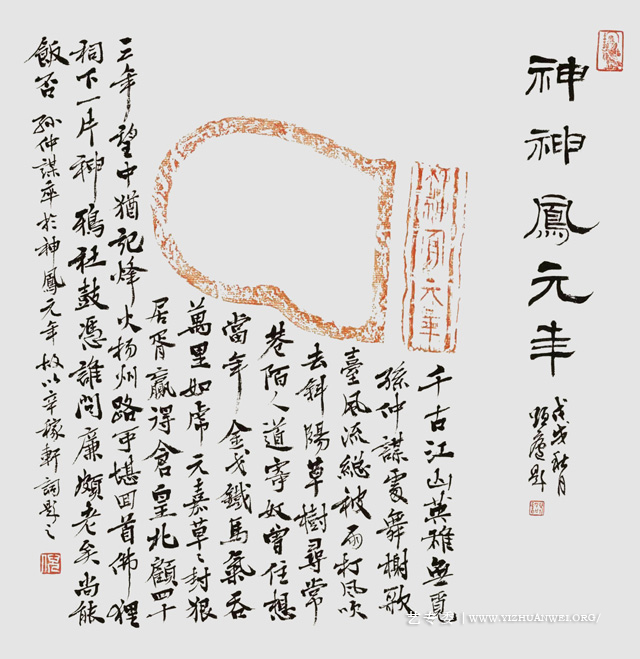 神神鳳元年
戊戌秋月
神鳳元年
千古江山英雄無覓
孫仲謀處舞榭歌
臺風流總被雨打風吹
去斜陽草樹尋常
巷陌人道寄奴曾住想
當年金戈鐵馬氣吞
萬里如虎元嘉草〻封狼
居胥贏得倉皇北顧四十
三年望中猶記烽火揚州路可堪回首佛狸
祠下一片神鴉社鼓憑誰問廉頗老矣尚能
飯否 孫仲謀卒於神鳳元年故以辛稼軒詞題之
艺专委 | WWW.YIZHUANWEI.ORG/